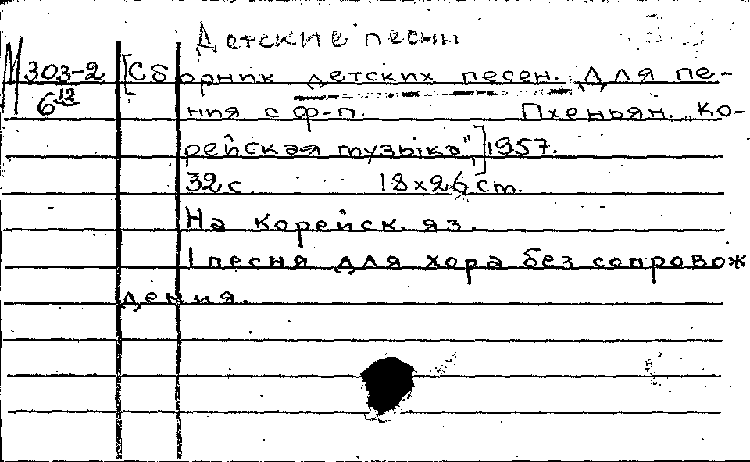 Детские песни
М303-2 [Сборник детских песен. Для пе-
6 12 ния с ф-п. Пхеньян. „Ко-
рейская музыка",] 1957.
32 с. 18х26 cm.
На корейск. яз.
1 песня для хора без сопровож
дения.